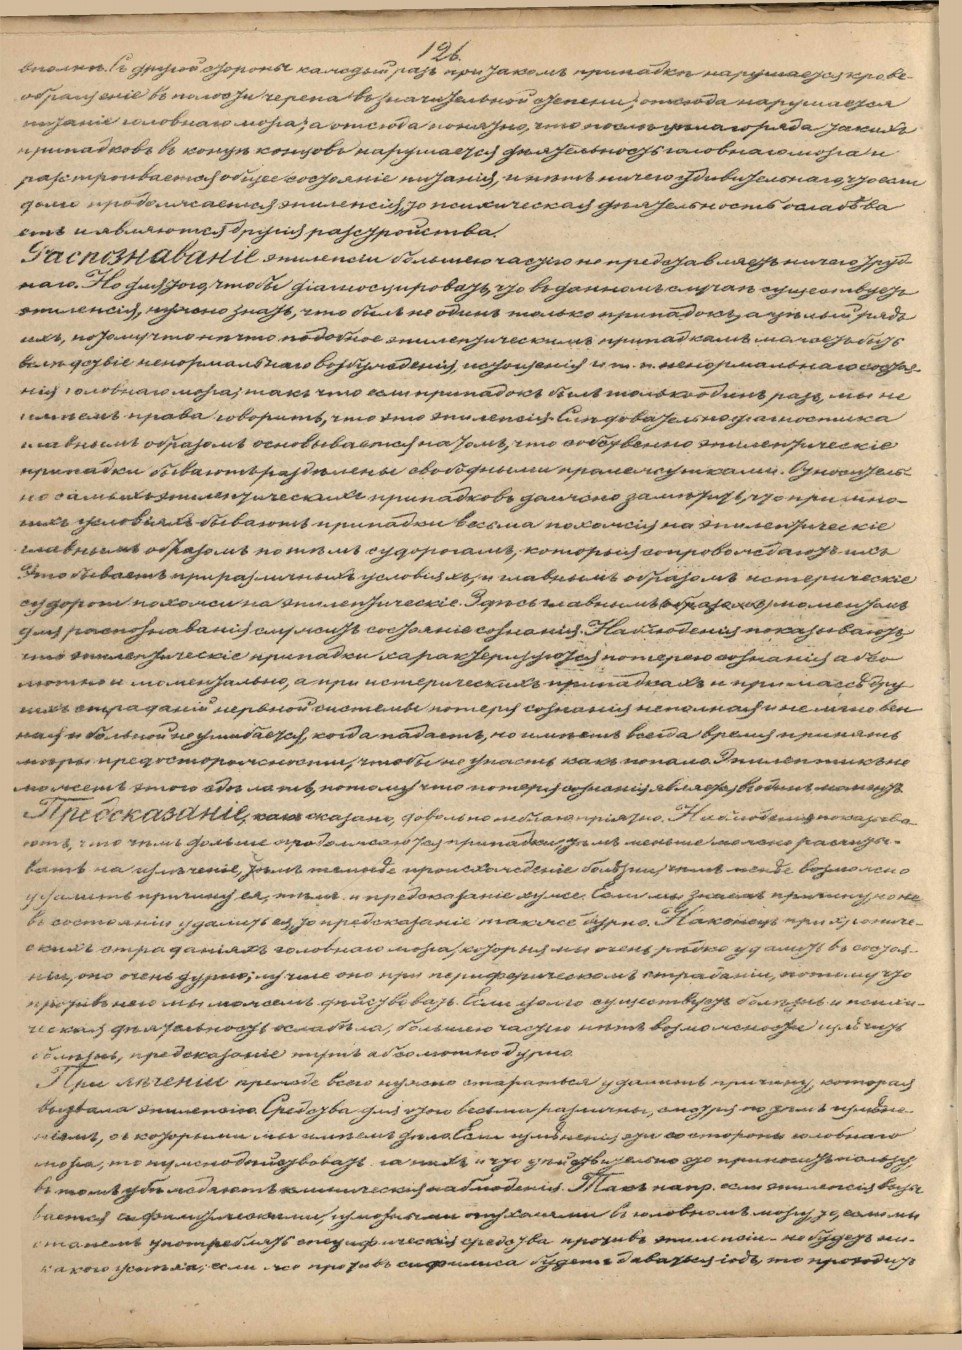 126.
вполнѣ. Съ другой стороны каждый разъ при такомъ припадкѣ нарушается крове-
обращеніе въ полости черепа въ значительной степени; отсюда нарушается
питаніе головнаго мозга; а отсюда понятно, что послѣ цѣлаго ряда такихъ
припадковъ въ концѣ концовъ нарушается дѣятельность головнаго мозга и
разстроивается общее состояніе питанія, и нѣтъ ничего удивительнаго, что если
долго продолжается эпилепсія, то психическая дѣятельность ослабѣва
етъ и являются другія разстройства.
Распознаваніе эпилепсіи большею частію не представляетъ ничего труд-
наго. Но для того, чтобы діагносцировать, что въ данномъ случаѣ существуетъ
эпилепсія, нужно знать, что былъ не одинъ только припадокъ, а цѣлый рядъ
ихъ, потому что нѣчто подобное эпилептическимъ припадкамъ можетъ быть
вслѣдствіе ненормальнаго возбужденія, истощенія и т. п. ненормальнаго состоя-
нія головнаго мозга; такъ что если припадокъ былъ только одинъ разъ, мы не
имѣемъ права говорить, что это эпилепсія. Слѣдовательно діагностика
главнымъ образомъ основывается на томъ, что собственно эпилептическіе
припадки бываютъ раздѣлены свободными промежутками. Относитель-
но самыхъ эпилептическихъ припадковъ должно замѣтить, что при мно-
гихъ условіяхъ бываютъ припадки весьма похожіе на эпилептическіе
главнымъ образомъ по тѣмъ судорогамъ, которыя сопровождаютъ ихъ
Это бываетъ при различныхъ условіяхъ, и главнымъ образомъ истерическіе
судороги похожи на эпилептическіе. Здѣсь главнымъ моментомъ
для распознаванія служитъ состояніе сознанія. Наблюденія показываютъ
что эпилептическіе припадки характеризуются потерею сознанія абсо
лютно и моментально, а при истерическихъ припадкахъ и при массѣ дру
гихъ страданій нервной системы потеря сознанія неполная и не мгновен
ная и больной не ушибается, когда падаетъ, но имѣетъ всегда время принять
мѣры предосторожности, чтобы не упасть какъ попало. Эпилептикъ не
можетъ этого сдѣлать, потому что потеря сознанія является въ одинъ моментъ.
Предсказаніе, какъ сказано, довольно неблагопріятно. Наблюденія показыва
ютъ, что чѣмъ дольше продолжаются припадки, тѣмъ меньше можно расчиты-
вать на излѣченіе, чѣмъ темнѣе происхожденіе болѣзни, чѣмъ менѣе возможно
удалить причину ея, тѣмъ и предсказаніе хуже. Если мы знаемъ причину, но не
въ состояніи удалить ея, то предсказаніе также дурно. Наконецъ при хрониче-
скихъ страданіяхъ головнаго мозга, которыя мы очень рѣдко удалить въ состоя-
ніи, оно очень дурно; лучше оно при периферическомъ страданіи, потому что
противъ него мы можемъ дѣйствовать. Если долго существуетъ болѣзнь и психи-
ческая дѣятельность ослабѣла, большею частію нѣтъ возможности излѣчить
болѣзнь, предсказаніе тутъ абсолютно дурно.
При лѣченіи прежде всего нужно стараться удалить причину, которая
вызвала эпилепсію. Средства для этого весьма различны, смотря по тѣмъ измѣне-
ніямъ, съ которыми мы имѣемъ дѣло. Если измѣненія эти со стороны головнаго
мозга, то нужно дѣйствовать на нихъ и что дѣйствительно это приноситъ пользу,
въ томъ убѣждаютъ клиническія наблюденія. Такъ напр. если эпилепсія вызы
вается сифилитическими опухолями въ головномъ мозгу, то, если мы
станемъ употреблять специфическія средства противъ эпилепсіи не будетъ ни-
какого успѣха; если же противъ сифилиса будетъ даваться іодъ, то проходитъ